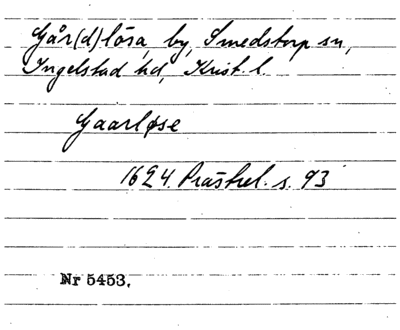 Går(d)lösa, by, Smedstorp sn,
Ingelstad hd, Krist. l.
Gaarløse
1624. Prästrel. s. 93
Nr 5453.